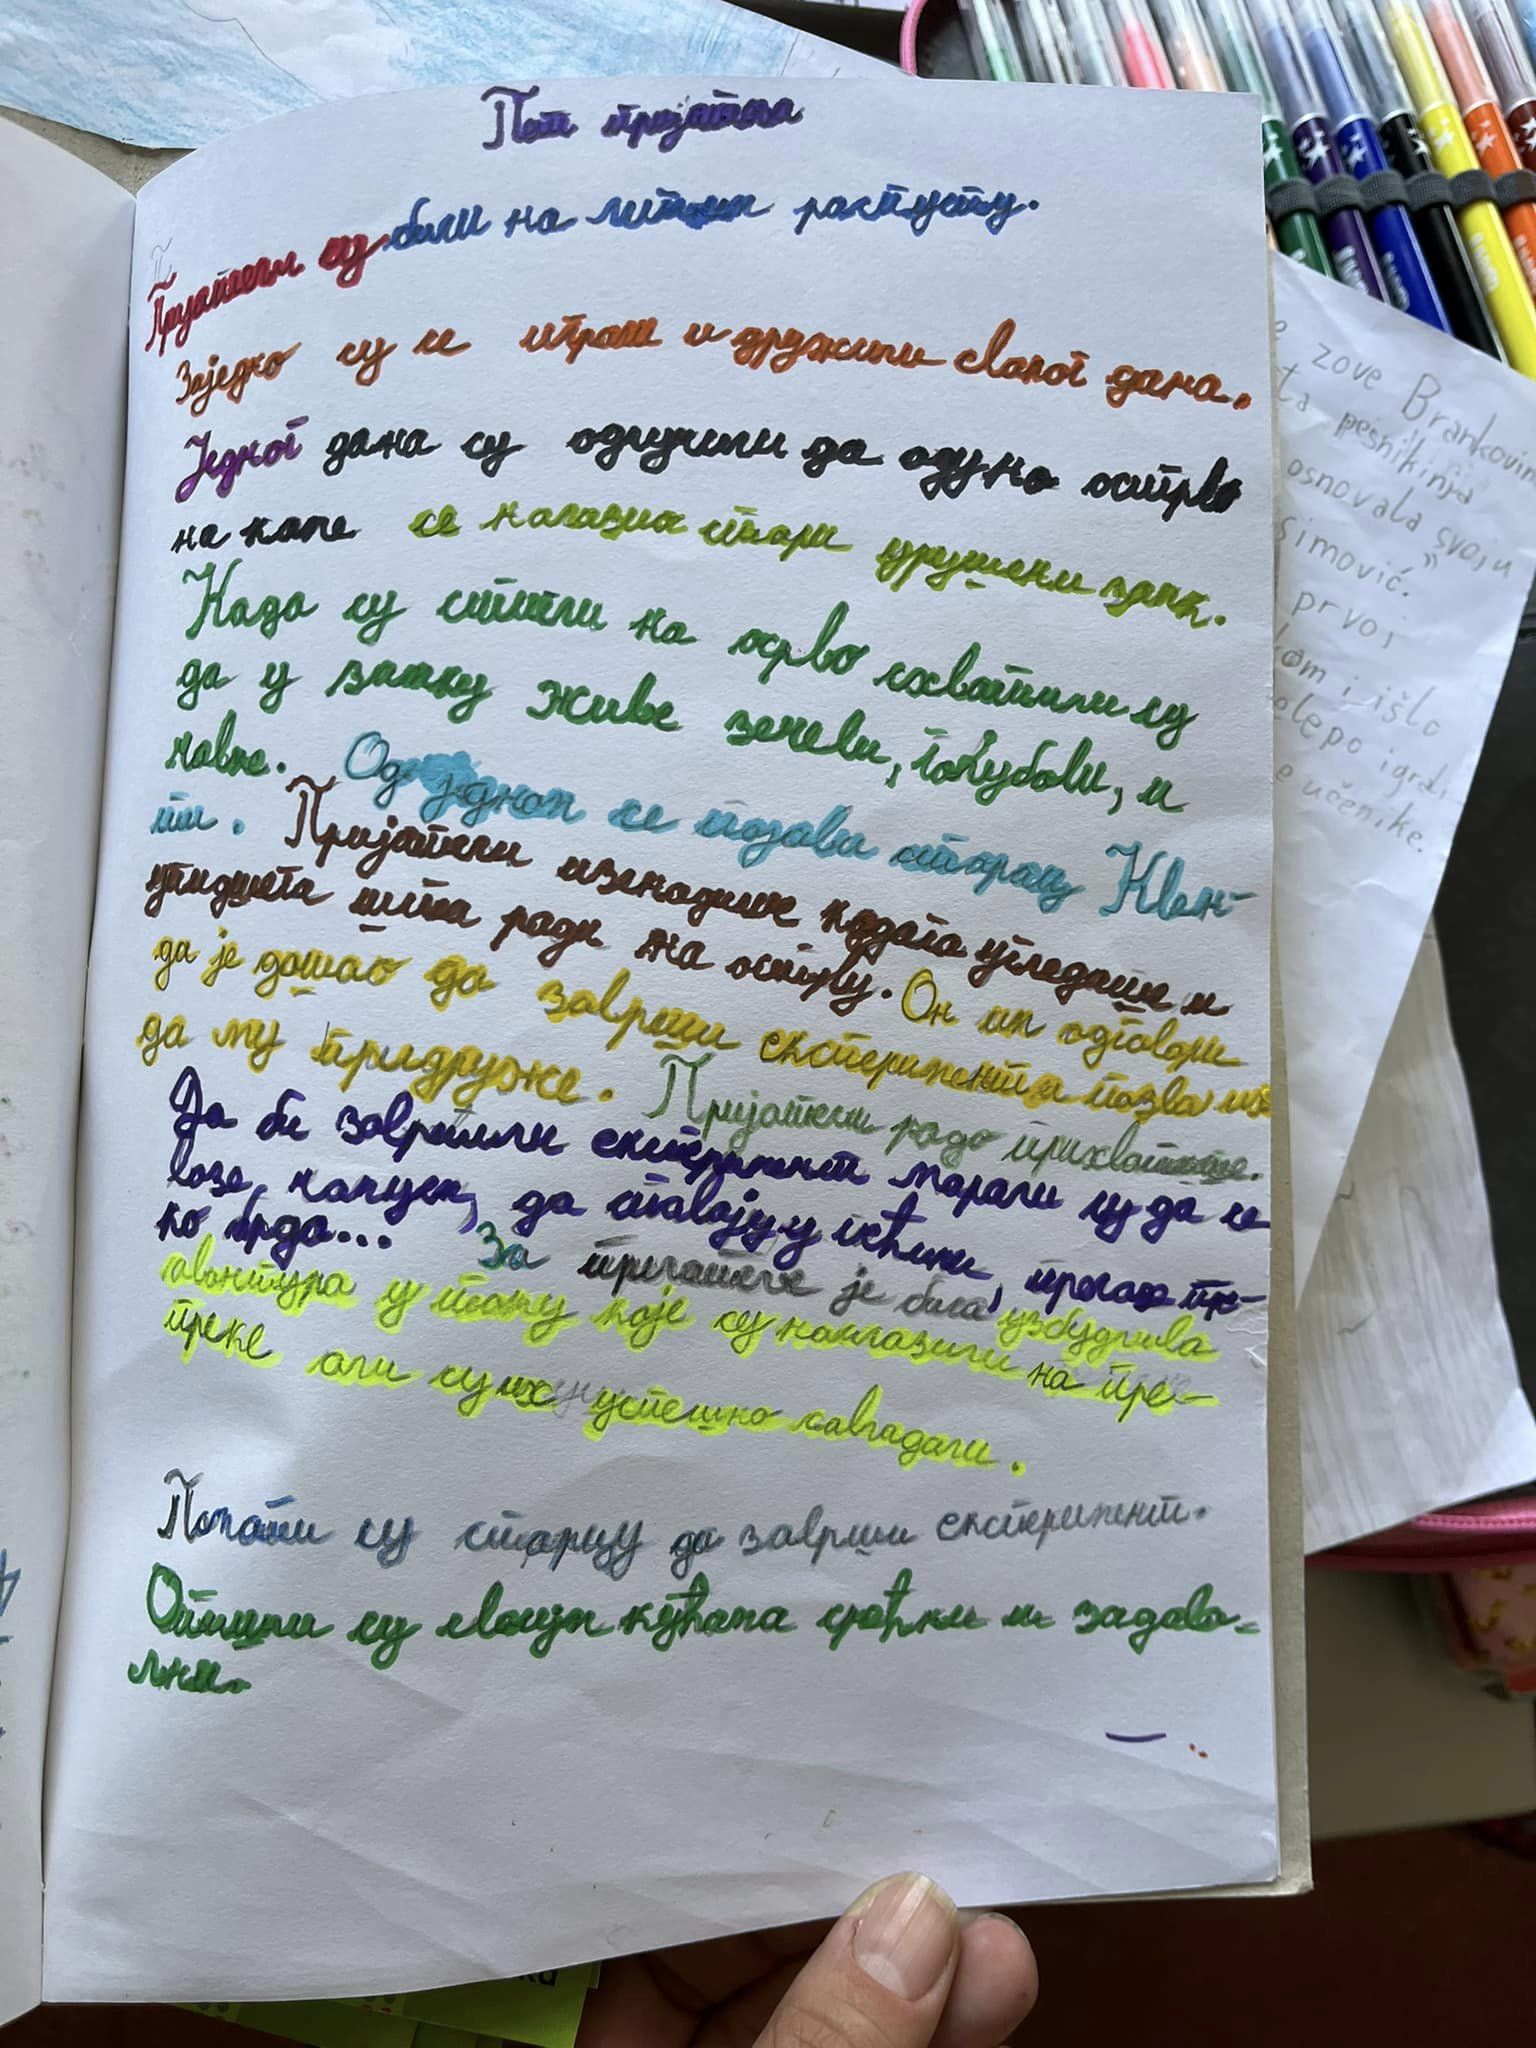 Пет пријатеља
Пријатељи су били на летњем распусту.
Заједно су се играли и дружили сваког дана.
Једног дана су одлучили да оду на острво
на коме се налазио стари урушени замк.
Када су стигли на осрво схватили су
да у замку живе зечеви, голубови, и
чавке. Одједном се појави старац Квен-
тин. Пријатељи изненадише кадага угледаше и
упиташега шта ради на острву. Он им одговори
да је дошао да заврши експеримент и позва их
да му придруже. Пријатељи радо прихватише.
Да би завршили експеримент морали су да се
возе чамцем, да спавају у пећини, прелазе пре-
ко брда... За пријатеље је била узбудљива
авантура у току које су наилазили на пре-
преке али су их успешно савладали.
Помогли су старцу да заврши експеримент.
Отишли су својим кућама срећни и задово-
љни.
е zove Brankovin
ta pesnikinja
osnovala svoju
Simović.
prvoj
kom i išlo
lepo igral
e učenike.